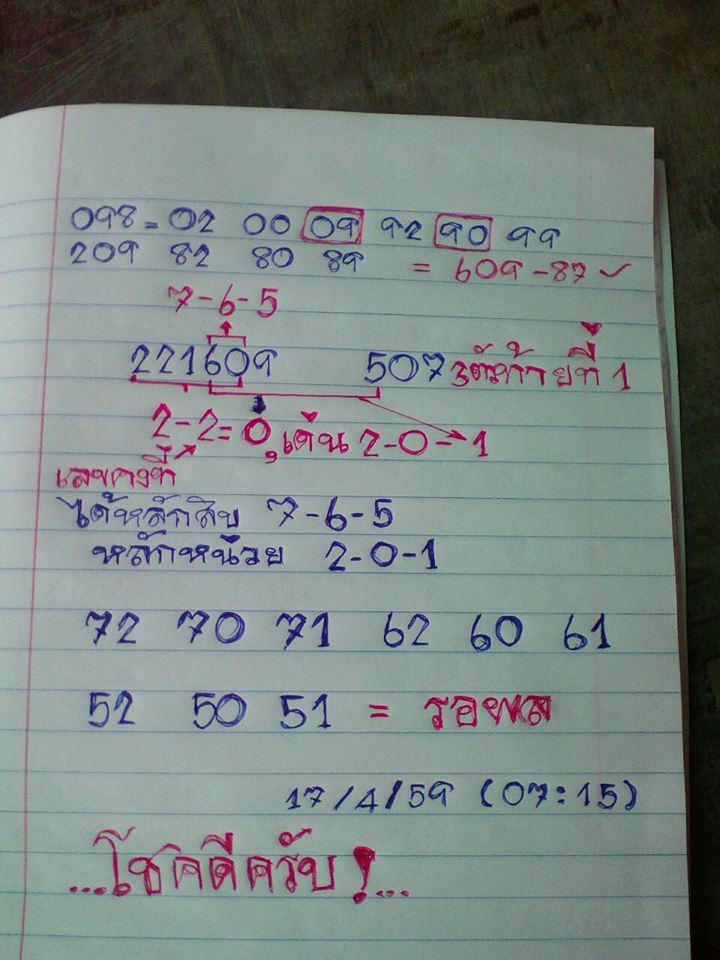 098 = 02 00 09 92 90 99
209 82 80 89 = 609 - 87 ✓
7-6-5
221609 507 3ตัวท้ายที่ 1
2-2=0, เด่น 2-0-1
เลขคงที่
ได้หลักสิบ 7-6-5
หลักหน่วย 2-0-1
72 70 71 62 60 61
52 50 51 = รอผล
17/4/59 (07:15)
...โชคดีครับ!...